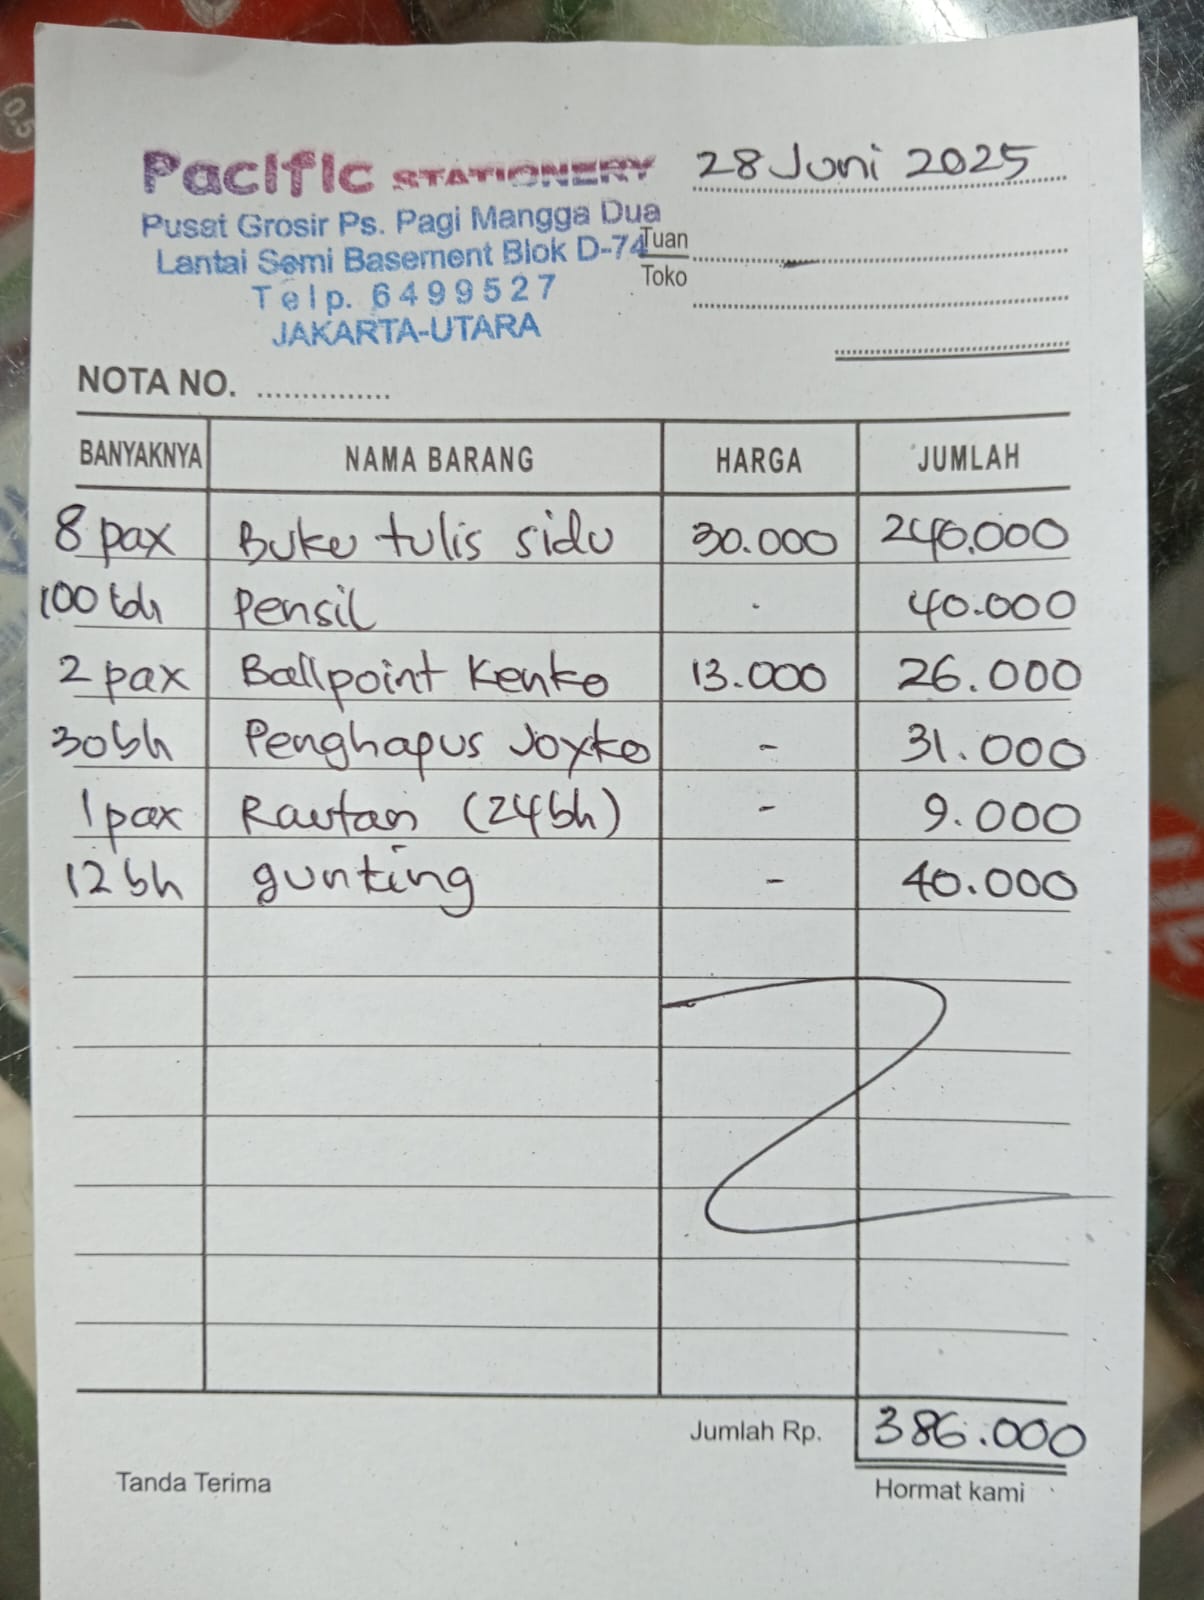 Pacific STATIONERY
Pusat Grosir Ps. Pagi Mangga Dua
Lantai Semi Basement Blok D-74
Telp. 6499527
JAKARTA-UTARA
28 Juni 2025
Tuan
Toko
NOTA NO. ...............
BANYAKNYA NAMA BARANG HARGA JUMLAH
8 pax Buku tulis sidu 30.000 240.000
100 bh Pensil . 40.000
2 pax Ballpoint Kenko 13.000 26.000
30 bh Penghapus Joyko - 31.000
1 pax Rautan (24 bh) - 9.000
12 bh gunting - 40.000
Jumlah Rp. 386.000
Tanda Terima Hormat kami
0.5